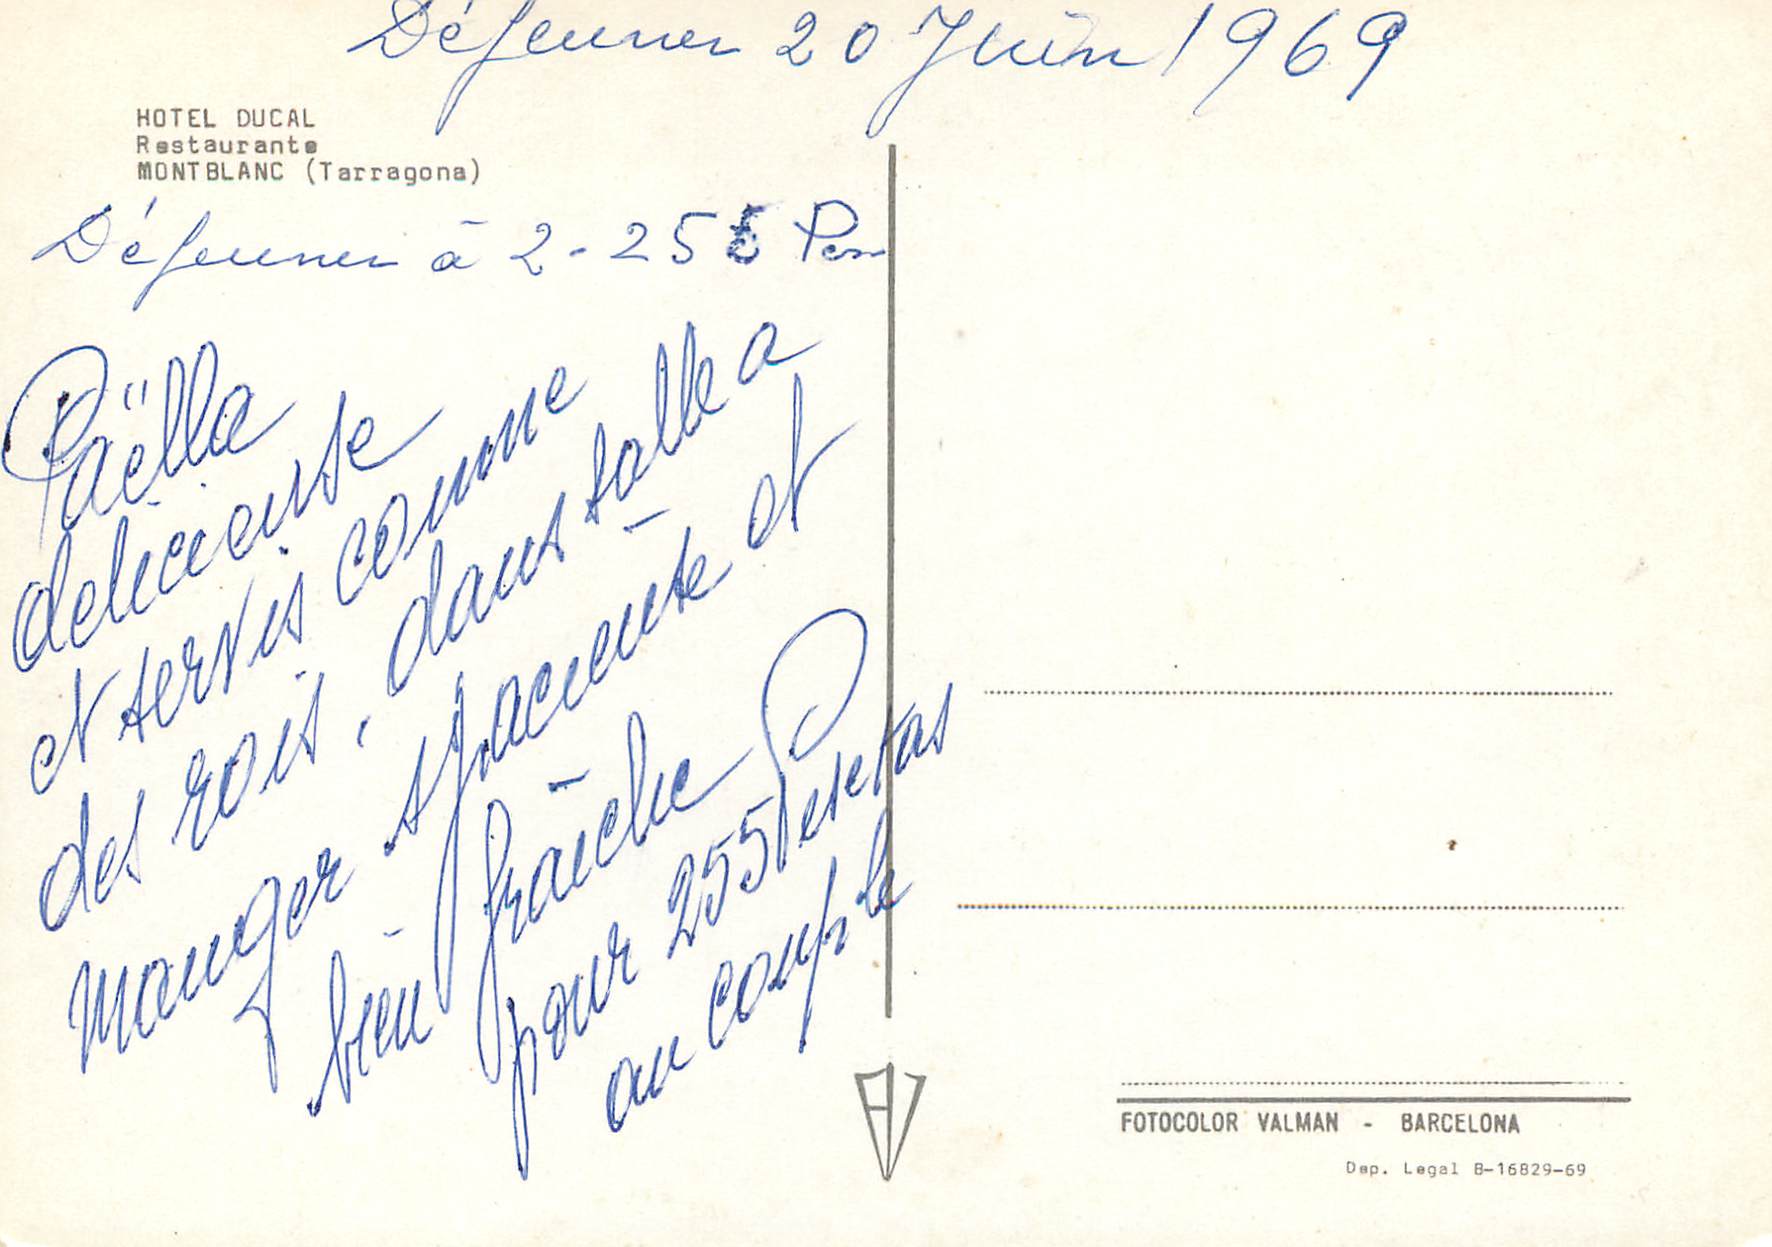 Déjeuner 20 Juin 1969
HOTEL DUCAL
Restaurante
MONTBLANC (Tarragona)
Déjeuner à 2 - 255 Pes
Paëlla
delicieuse
et servis comme
des rois, dans salle a
manger spacieuse et
bien fraîche
pour 255 Pesetas
au couple
FOTOCOLOR VALMAN - BARCELONA
Dep. Legal B-16829-69